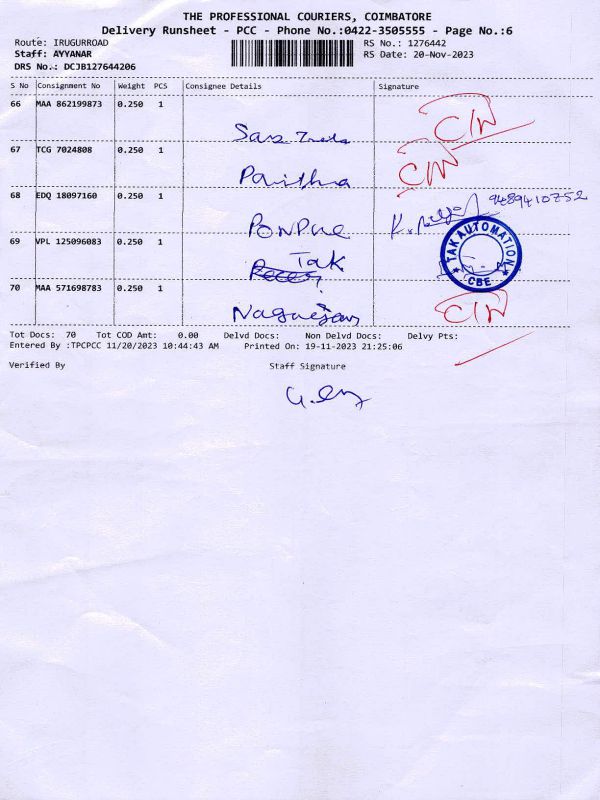 THE PROFESSIONAL COURIERS, COIMBATORE
Delivery Runsheet - PCC - Phone No.:0422-3505555 - Page No.:6
Route: IRUGURROAD RS No.: 1276442
Staff: AYYANAR RS Date: 20-Nov-2023
DRS No.: DCJB127644206
S No Consignment No Weight PCS Consignee Details Signature
66 MAA 862199873 0.250 1
67 TCG 7024808 0.250 1
68 EDQ 18097160 0.250 1 9489410752
69 VPL 125096083 0.250 1 Tak TAK AUTOMATION CBE
70 MAA 571698783 0.250 1
Tot Docs: 70 Tot COD Amt: 0.00 Delvd Docs: Non Delvd Docs: Delvy Pts:
Entered By :TPCPCC 11/20/2023 10:44:43 AM Printed On: 19-11-2023 21:25:06
Verified By Staff Signature